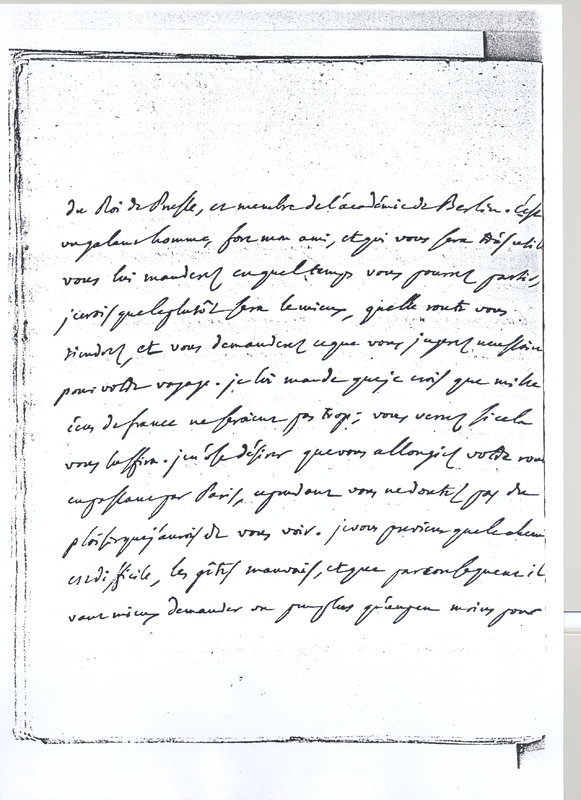 du Roi de Prusse, et membre de l'académie de Berlin. C'est
un galant homme, fort mon ami, et qui vous sera très utile
vous lui manderez en quel temps vous pourrez partir,
je crois que le plutôt sera le mieux, quelle route vous
tiendrez, et vous demanderez ce que vous jugerez necessaire
pour votre voyage. je lui mande que je crois que mille
écus de france ne seraient pas trop; vous verrez si cela
vous suffira. je n'ose désirer que vous allongiez votre route
en passant par Paris, cependant vous ne doutez pas du
plaisir que j'aurois de vous voir. je vous previens que le chemin
est difficile, les gîtes mauvais, et que par consequent il
vaut mieux demander un peu plus qu'un peu moins pour